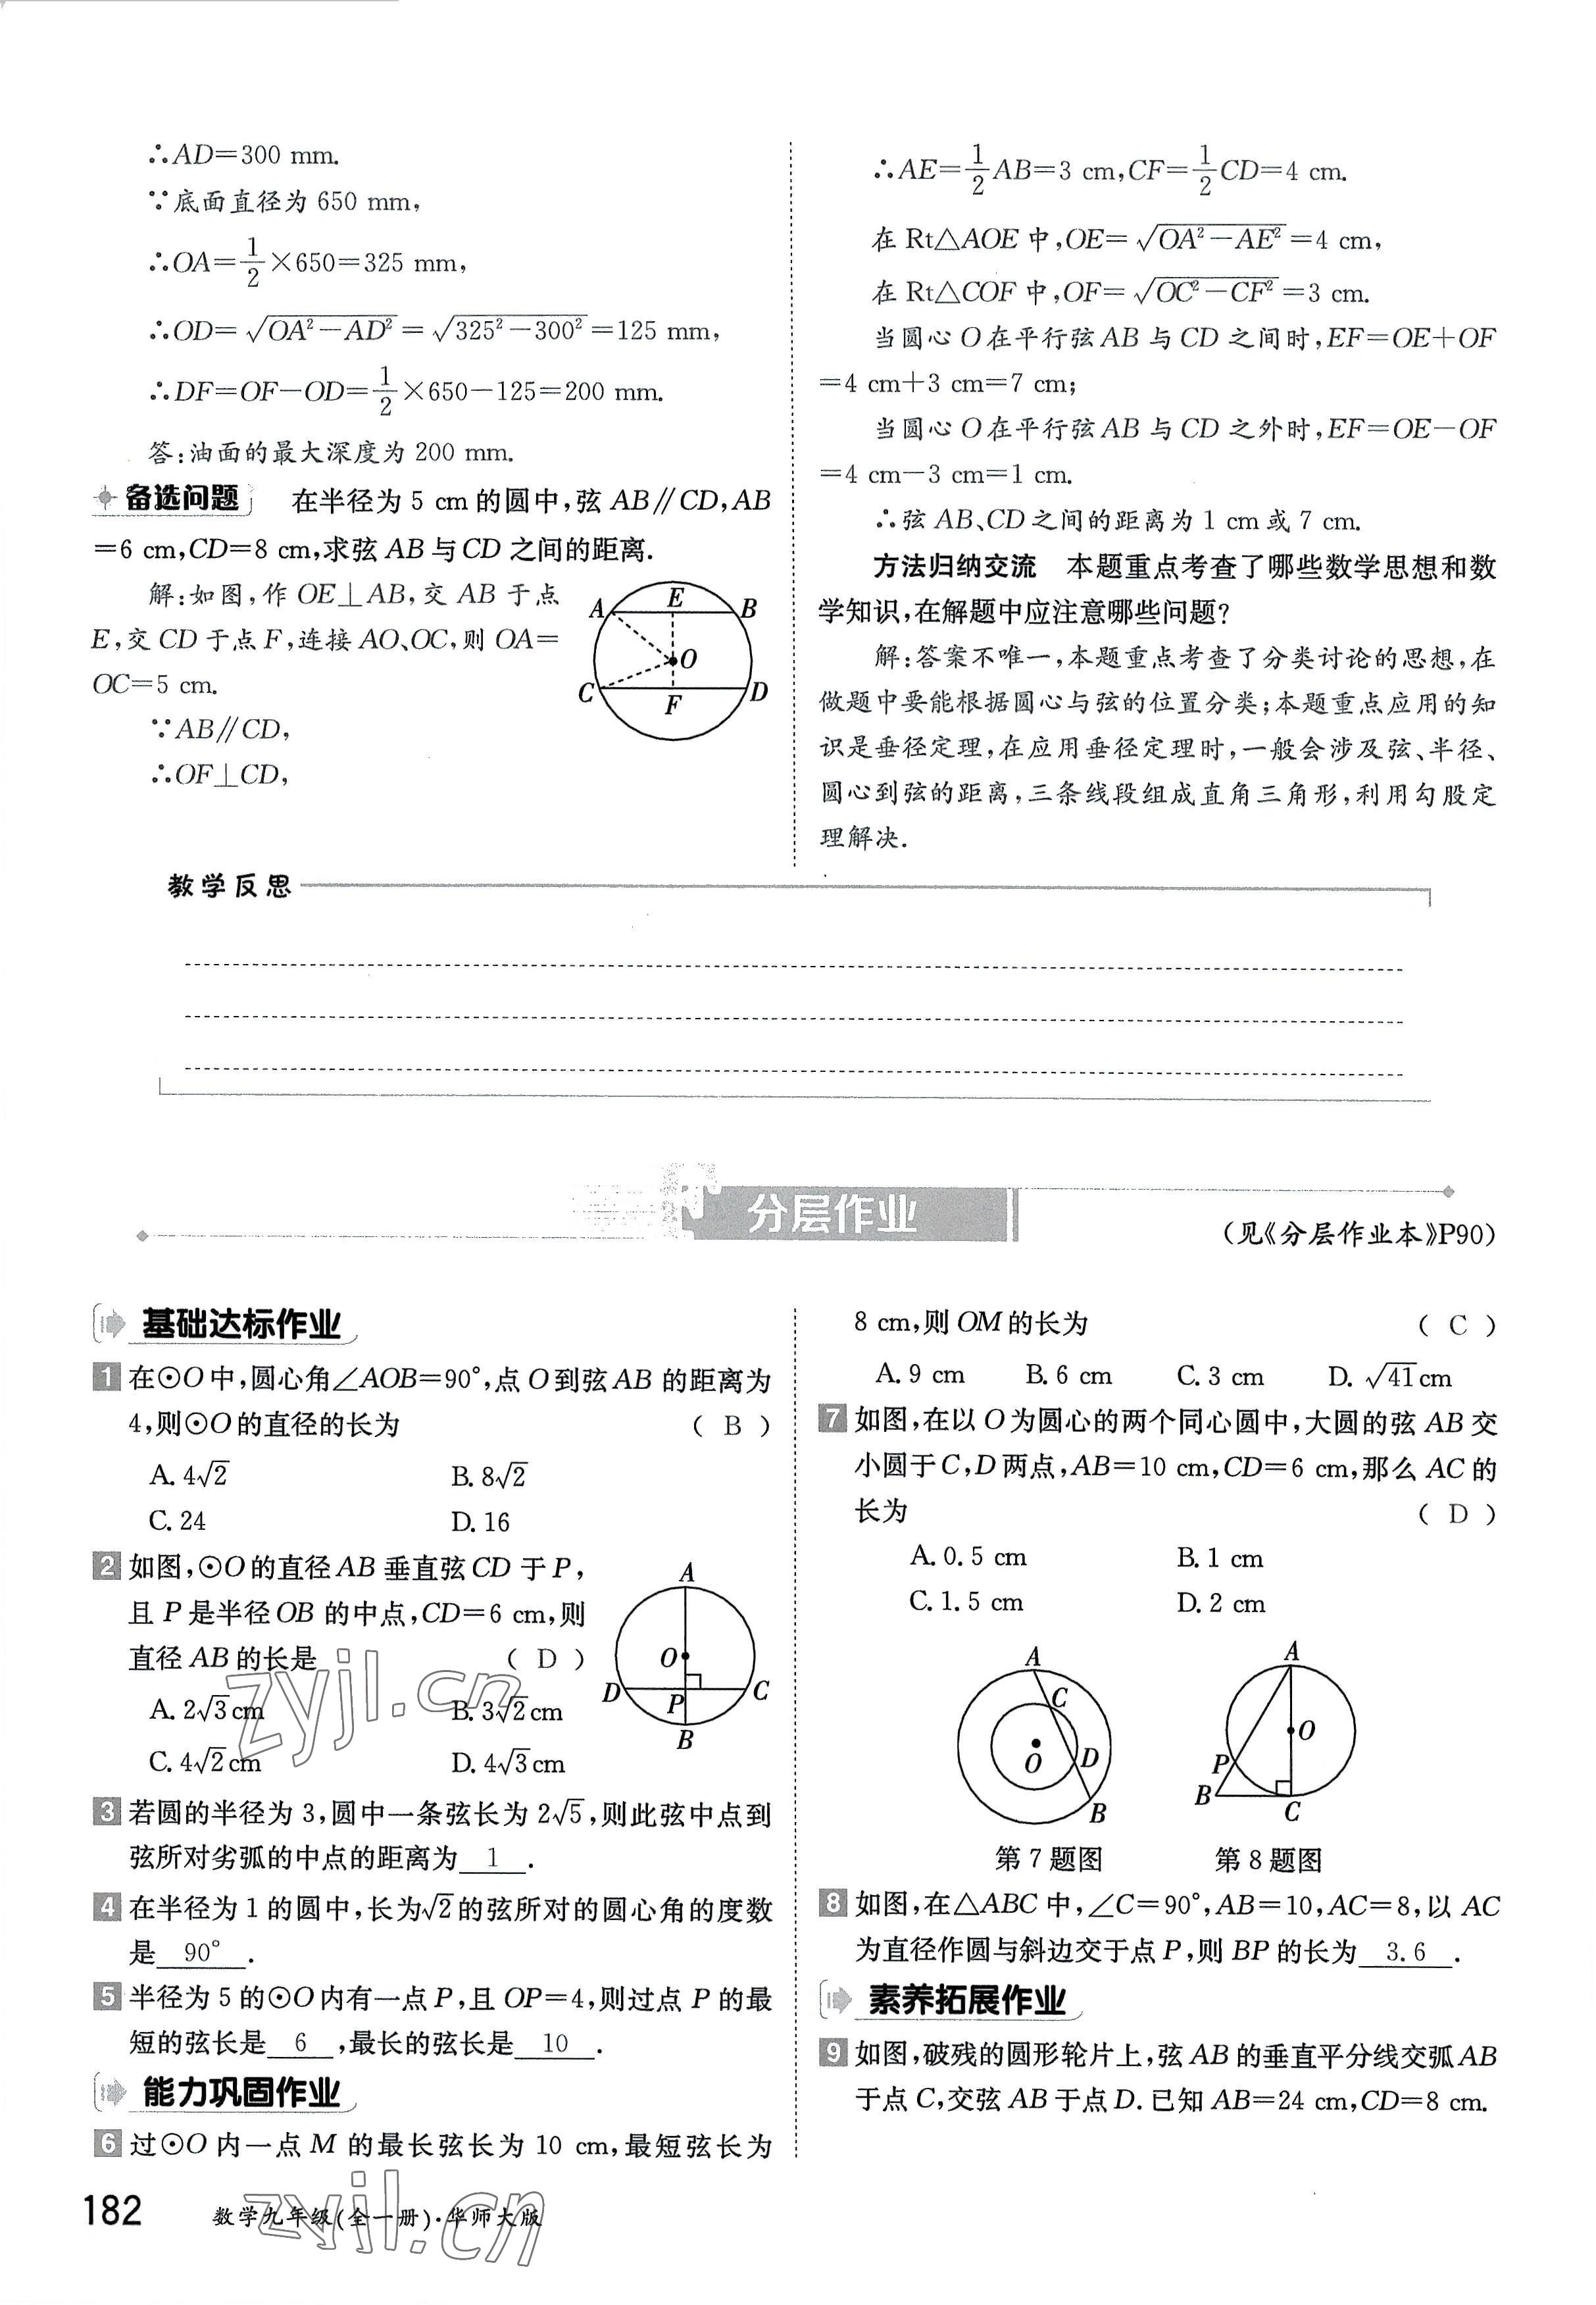 ∴AD=300 mm.
∵底面直径为 650 mm,
∴OA=1/2×650=325 mm,
∴OD=√(OA²-AD²)=√(325²-300²)=125 mm,
∴DF=OF-OD=1/2×650-125=200 mm.
答:油面的最大深度为 200 mm.
备选问题 在半径为 5 cm 的圆中,弦 AB∥CD,AB
=6 cm,CD=8 cm,求弦 AB 与 CD 之间的距离.
解:如图,作 OE⊥AB,交 AB 于点
E,交 CD 于点 F,连接 AO、OC,则 OA=
OC=5 cm.
∵AB∥CD,
∴OF⊥CD,
A E B
O
C F D
∴AE=1/2AB=3 cm,CF=1/2CD=4 cm.
在 Rt△AOE 中,OE=√(OA²-AE²)=4 cm,
在 Rt△COF 中,OF=√(OC²-CF²)=3 cm.
当圆心 O 在平行弦 AB 与 CD 之间时,EF=OE+OF
=4 cm+3 cm=7 cm;
当圆心 O 在平行弦 AB 与 CD 之外时,EF=OE-OF
=4 cm-3 cm=1 cm.
∴弦 AB、CD 之间的距离为 1 cm 或 7 cm.
方法归纳交流 本题重点考查了哪些数学思想和数
学知识,在解题中应注意哪些问题?
解:答案不唯一,本题重点考查了分类讨论的思想,在
做题中要能根据圆心与弦的位置分类;本题重点应用的知
识是垂径定理,在应用垂径定理时,一般会涉及弦、半径、
圆心到弦的距离,三条线段组成直角三角形,利用勾股定
理解决.
教学反思
分层作业
(见《分层作业本》P90)
基础达标作业
1 在⊙O 中,圆心角∠AOB=90°,点 O 到弦 AB 的距离为
4,则⊙O 的直径的长为 ( B )
A. 4√2 B. 8√2
C. 24 D. 16
2 如图,⊙O 的直径 AB 垂直弦 CD 于 P,
且 P 是半径 OB 的中点,CD=6 cm,则
直径 AB 的长是 ( D )
A. 2√3 cm B. 3√2 cm
C. 4√2 cm D. 4√3 cm
A
O
D P C
B
3 若圆的半径为 3,圆中一条弦长为 2√5,则此弦中点到
弦所对劣弧的中点的距离为 1 .
4 在半径为 1 的圆中,长为√2的弦所对的圆心角的度数
是 90° .
5 半径为 5 的⊙O 内有一点 P,且 OP=4,则过点 P 的最
短的弦长是 6 ,最长的弦长是 10 .
能力巩固作业
6 过⊙O 内一点 M 的最长弦长为 10 cm,最短弦长为
8 cm,则 OM 的长为 ( C )
A. 9 cm B. 6 cm C. 3 cm D. √41 cm
7 如图,在以 O 为圆心的两个同心圆中,大圆的弦 AB 交
小圆于 C,D 两点,AB=10 cm,CD=6 cm,那么 AC 的
长为 ( D )
A. 0.5 cm B. 1 cm
C. 1.5 cm D. 2 cm
A
C
O D
B
第 7 题图
A
O
P
B C
第 8 题图
8 如图,在△ABC 中,∠C=90°,AB=10,AC=8,以 AC
为直径作圆与斜边交于点 P,则 BP 的长为 3.6 .
素养拓展作业
9 如图,破残的圆形轮片上,弦 AB 的垂直平分线交弧 AB
于点 C,交弦 AB 于点 D.已知 AB=24 cm,CD=8 cm.
zyjl.cn
182 数学九年级(全一册)·华师大版
zyjl.cn